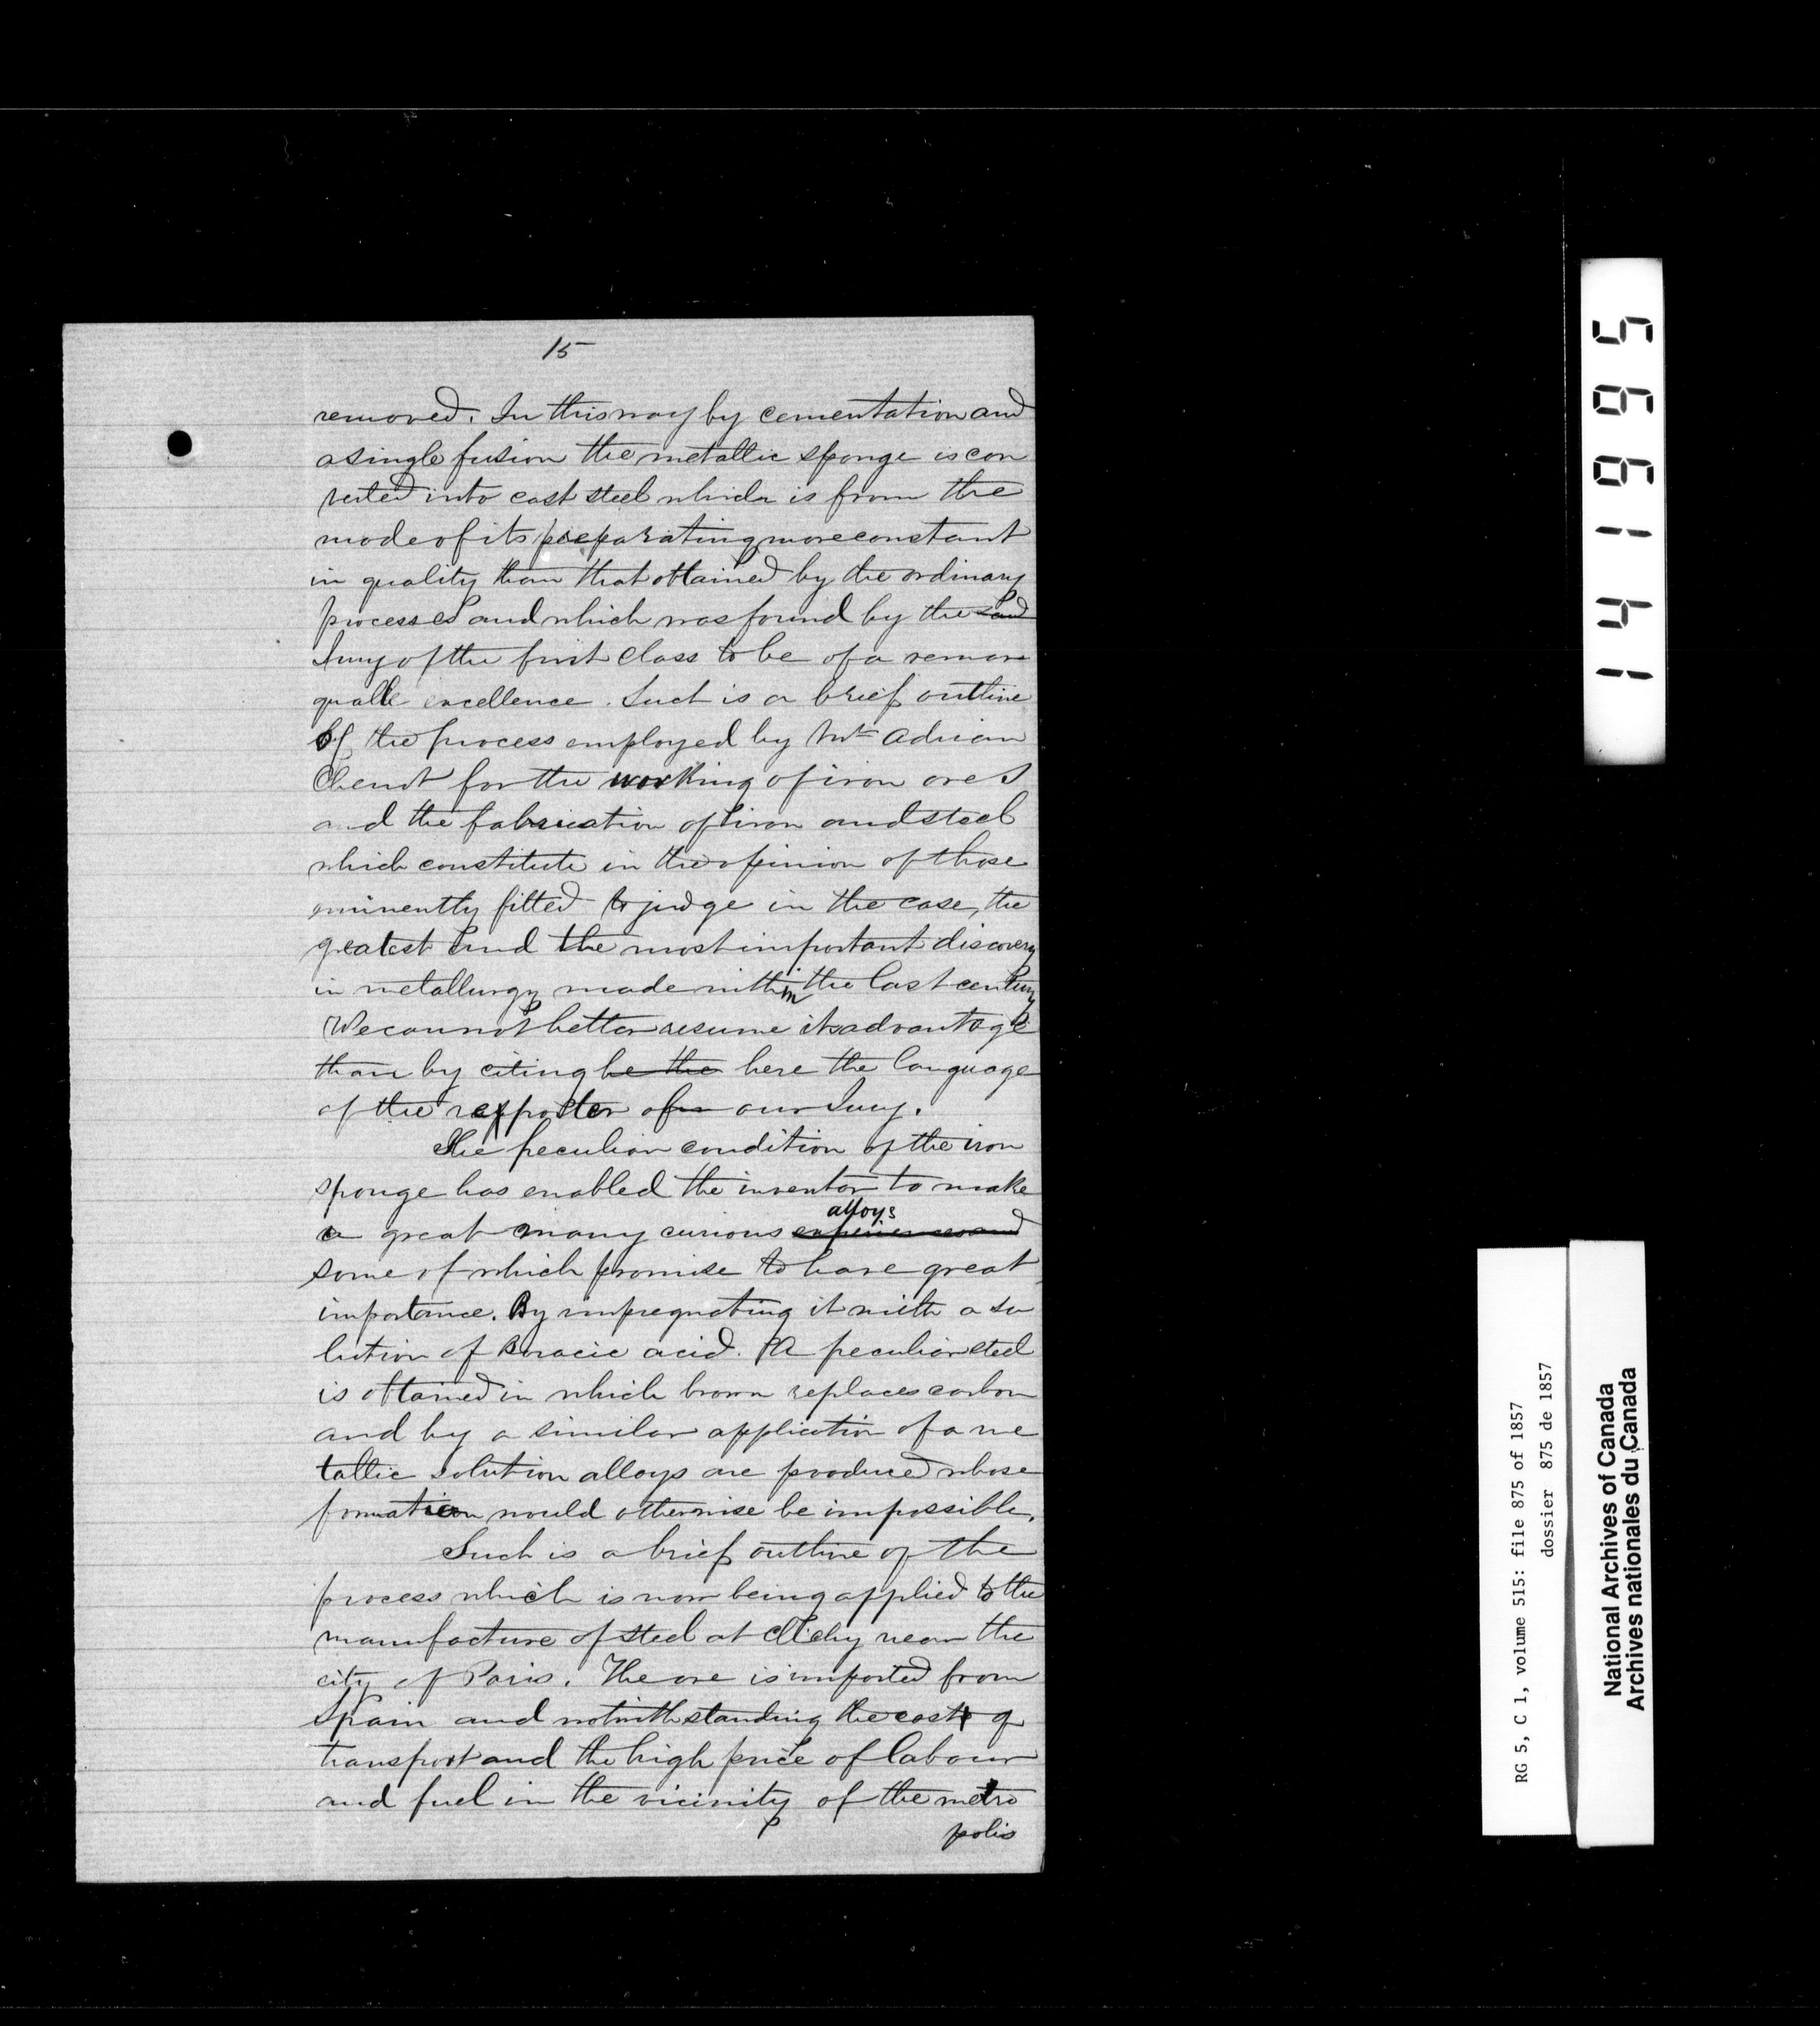 15
removed. In this way by cementation and
a single fusion the metallic sponge is con
verted into cast steel which is from the
mode of its preparating more constant
in quality than that obtained by the ordinary
processes and which was found by the said
Jury of the first class to be of a remar
quable excellence. Such is a brief outline
of the process employed by Mr Adrian
Chenot for the working of iron ores
and the fabrication of iron and steel
which constitute in the opinion of those
eminently fitted to judge in the case, the
greatest and the most important discovery
in metallurgy made within the last century
We cannot better resume its advantage
than by citing he the here the language
of the reporter of our Jury.
The peculiar condition of the iron
sponge has enabled the inventor to make
alloys
a great many curious experiences and
some of which promise to have great
importance. By impregnating it with a so
lution of Boracic acid. A peculiar steel
is obtained in which brown replaces carbon
and by a similar application of a me
tallic solution alloys are produced whose
formation would otherwise be impossible.
Such is a brief outline of the
process which is now being applied to the
manufacture of steel at Clichy near the
city of Paris. The ore is imported from
Spain and notwithstanding the cost of
transport and the high price of labour
and fuel in the vicinity of the metro
polis
141995
RG 5, C 1, volume 515: file 875 of 1857
dossier 875 de 1857
National Archives of Canada
Archives nationales du Canada